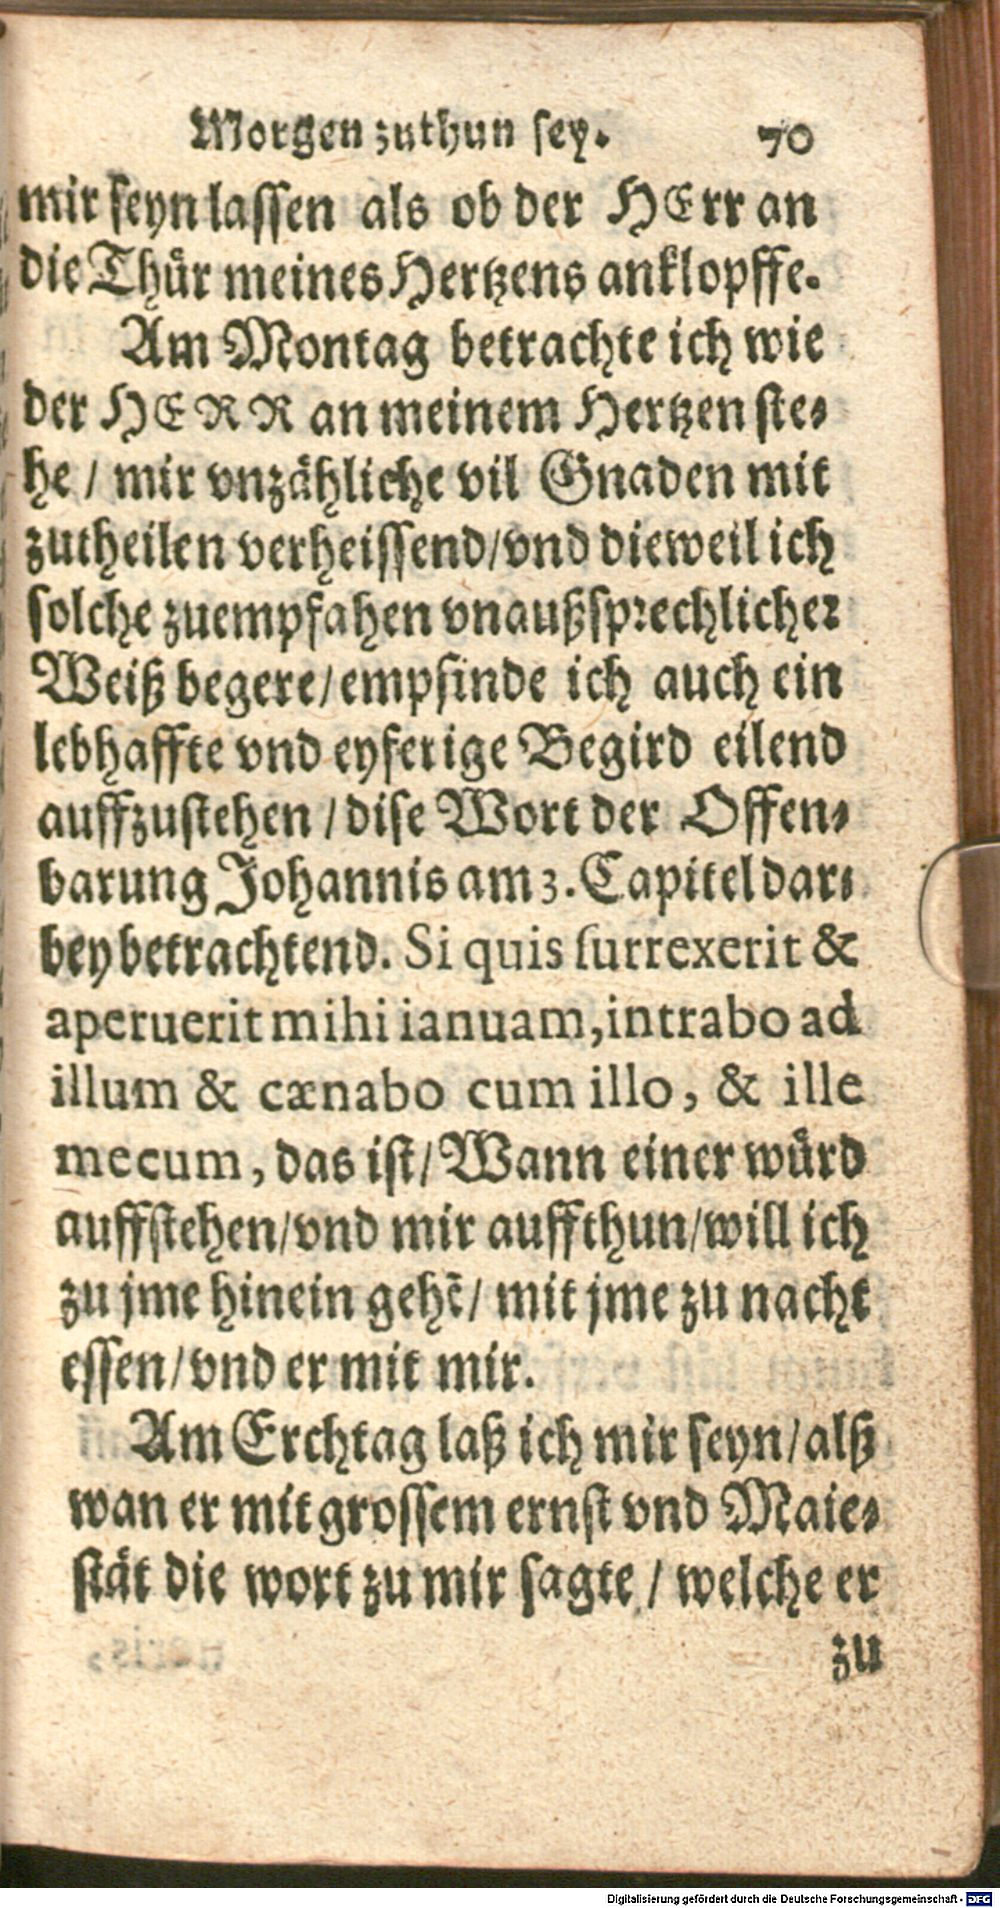 Morgen zuthun sey. 70
mir seyn lassen als ob der HErr an
die Thür meines Hertzens anklopffe.
Am Montag betrachte ich wie
der HERR an meinem Hertzen ste-
he / mir vnzähliche vil Gnaden mit
zutheilen verheissend/vnd dieweil ich
solche zuempfahen vnaußsprechlicher
Weiß begere/empfinde ich auch ein
lebhaffte vnd eyferige Begird eilend
auffzustehen / dise Wort der Offen-
barung Johannis am 3. Capitel dar-
bey betrachtend. Si quis surrexerit &
aperuerit mihi ianuam, intrabo ad
illum & cænabo cum illo, & ille
mecum, das ist/ Wann einer würd
auffstehen/vnd mir auffthun/will ich
zu jme hinein gehē/ mit jme zu nacht
essen/vnd er mit mir.
Am Erchtag laß ich mir seyn/alß
wan er mit grossem ernst vnd Maie-
stät die wort zu mir sagte / welche er
zu
Digitalisierung gefördert durch die Deutsche Forschungsgemeinschaft - DFG